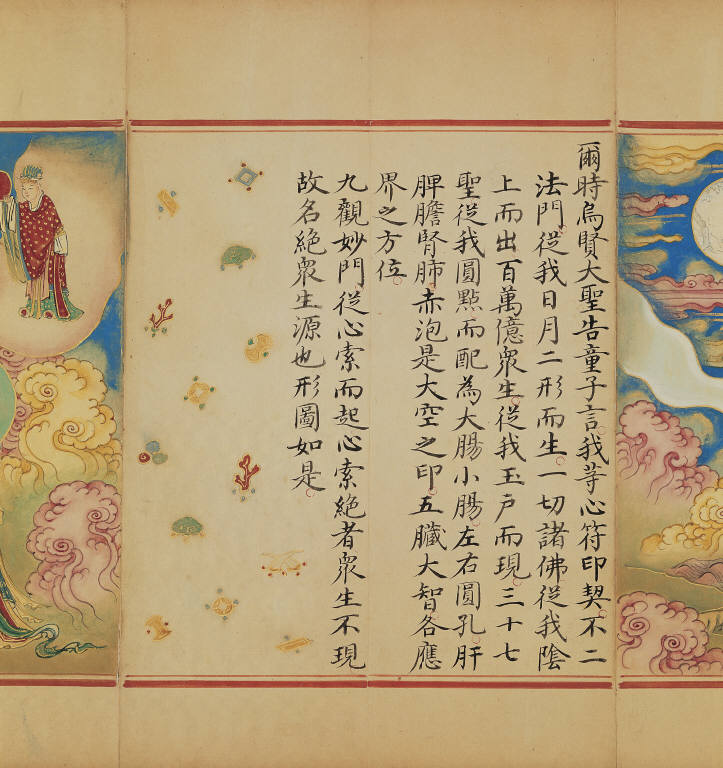 爾時烏賢大聖告童子言。我等心符印契。不二
法門從我日月二形而生。一切諸佛從我陰
上而出百萬億眾生。從我玉戸而現。三十七
聖從我圓點而配為大腸小腸左右圓孔。肝
脾膽腎肺赤泡是大空之印。五臟大智各應
界之方位。
九觀妙門從心索而起心索絶者眾生不現
故名絶眾生源也形圖如是。